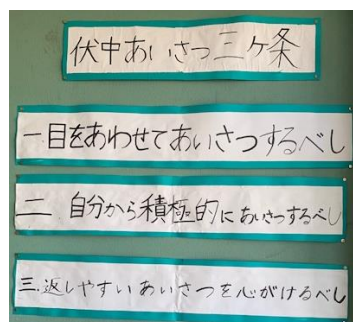 伏中あいさつ三ヶ条
一目をあわせてあいさつするべし
二 自分から積極的にあいさつするべし
三.返しやすいあいさつを心がけるべし